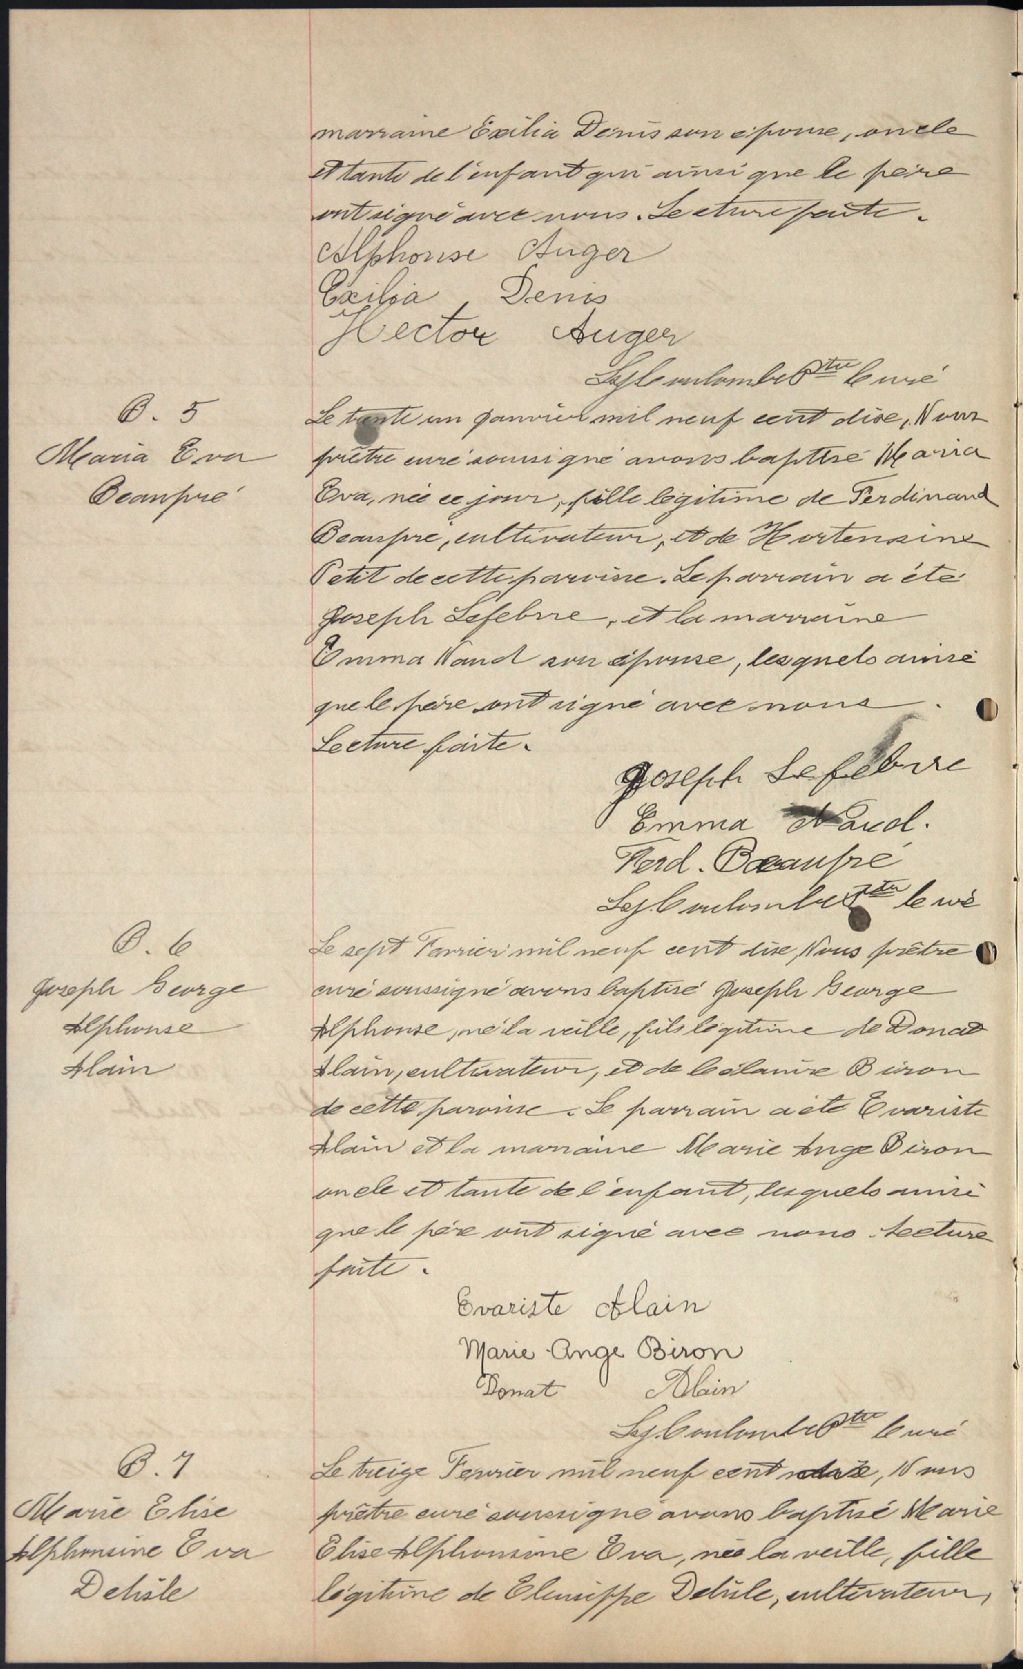 marraine Exilia Denis son épouse, oncle
et tante de l'enfant qui ainsi que le père
ont signé avec nous. Lecture faite.
Alphonse Auger
Exilia Denis
Hector Auger
Coulombe Ptre Curé
B. 5
Maria Eva
Beaupré
Le trente un Janvier mil neuf cent dixe, Nous
prêtre curé soussigné avons baptisé Maria
Eva, née ce jour, fille légitime de Ferdinand
Beaupré, cultivateur, et de Hortensine
Petit de cette paroisse. Le parrain a été
Joseph Lefebvre, et la marraine
Emma Naud son épouse, lesquels ainsi
que le père ont signé avec nous.
Lecture faite.
Joseph Lefebvre
Emma Naud.
Ferd. Beaupré
Coulombe Ptre Curé
B. 6
Joseph George
Alphonse
Alain
Le sept Fevrier mil neuf cent dixe, Nous prêtre
curé soussigné avons baptisé Joseph George
Alphonse, né la veille, fils légitime de Donat
Alain, cultivateur, et de Célanire Biron
de cette paroisse. Le parrain a été Evariste
Alain et la marraine Marie Ange Biron
oncle et tante de l'enfant, lesquels ainsi
que le père ont signé avec nous. Lecture
faite.
Evariste Alain
Marie-Ange Biron
Donat Alain
Coulombe Ptre Curé
B. 7
Marie Elise
Alphonsine Eva
Delisle
Le treize Fevrier mil neuf cent dixe, Nous
prêtre curé soussigné avons baptisé Marie
Elise Alphonsine Eva, née la veille, fille
légitime de Eleusippe Delisle, cultivateur,